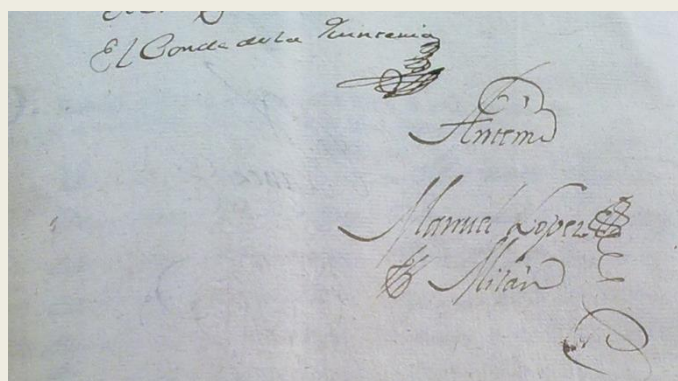 El Conde de la Quinteria
Antemi
Manuel Lopez
Milán